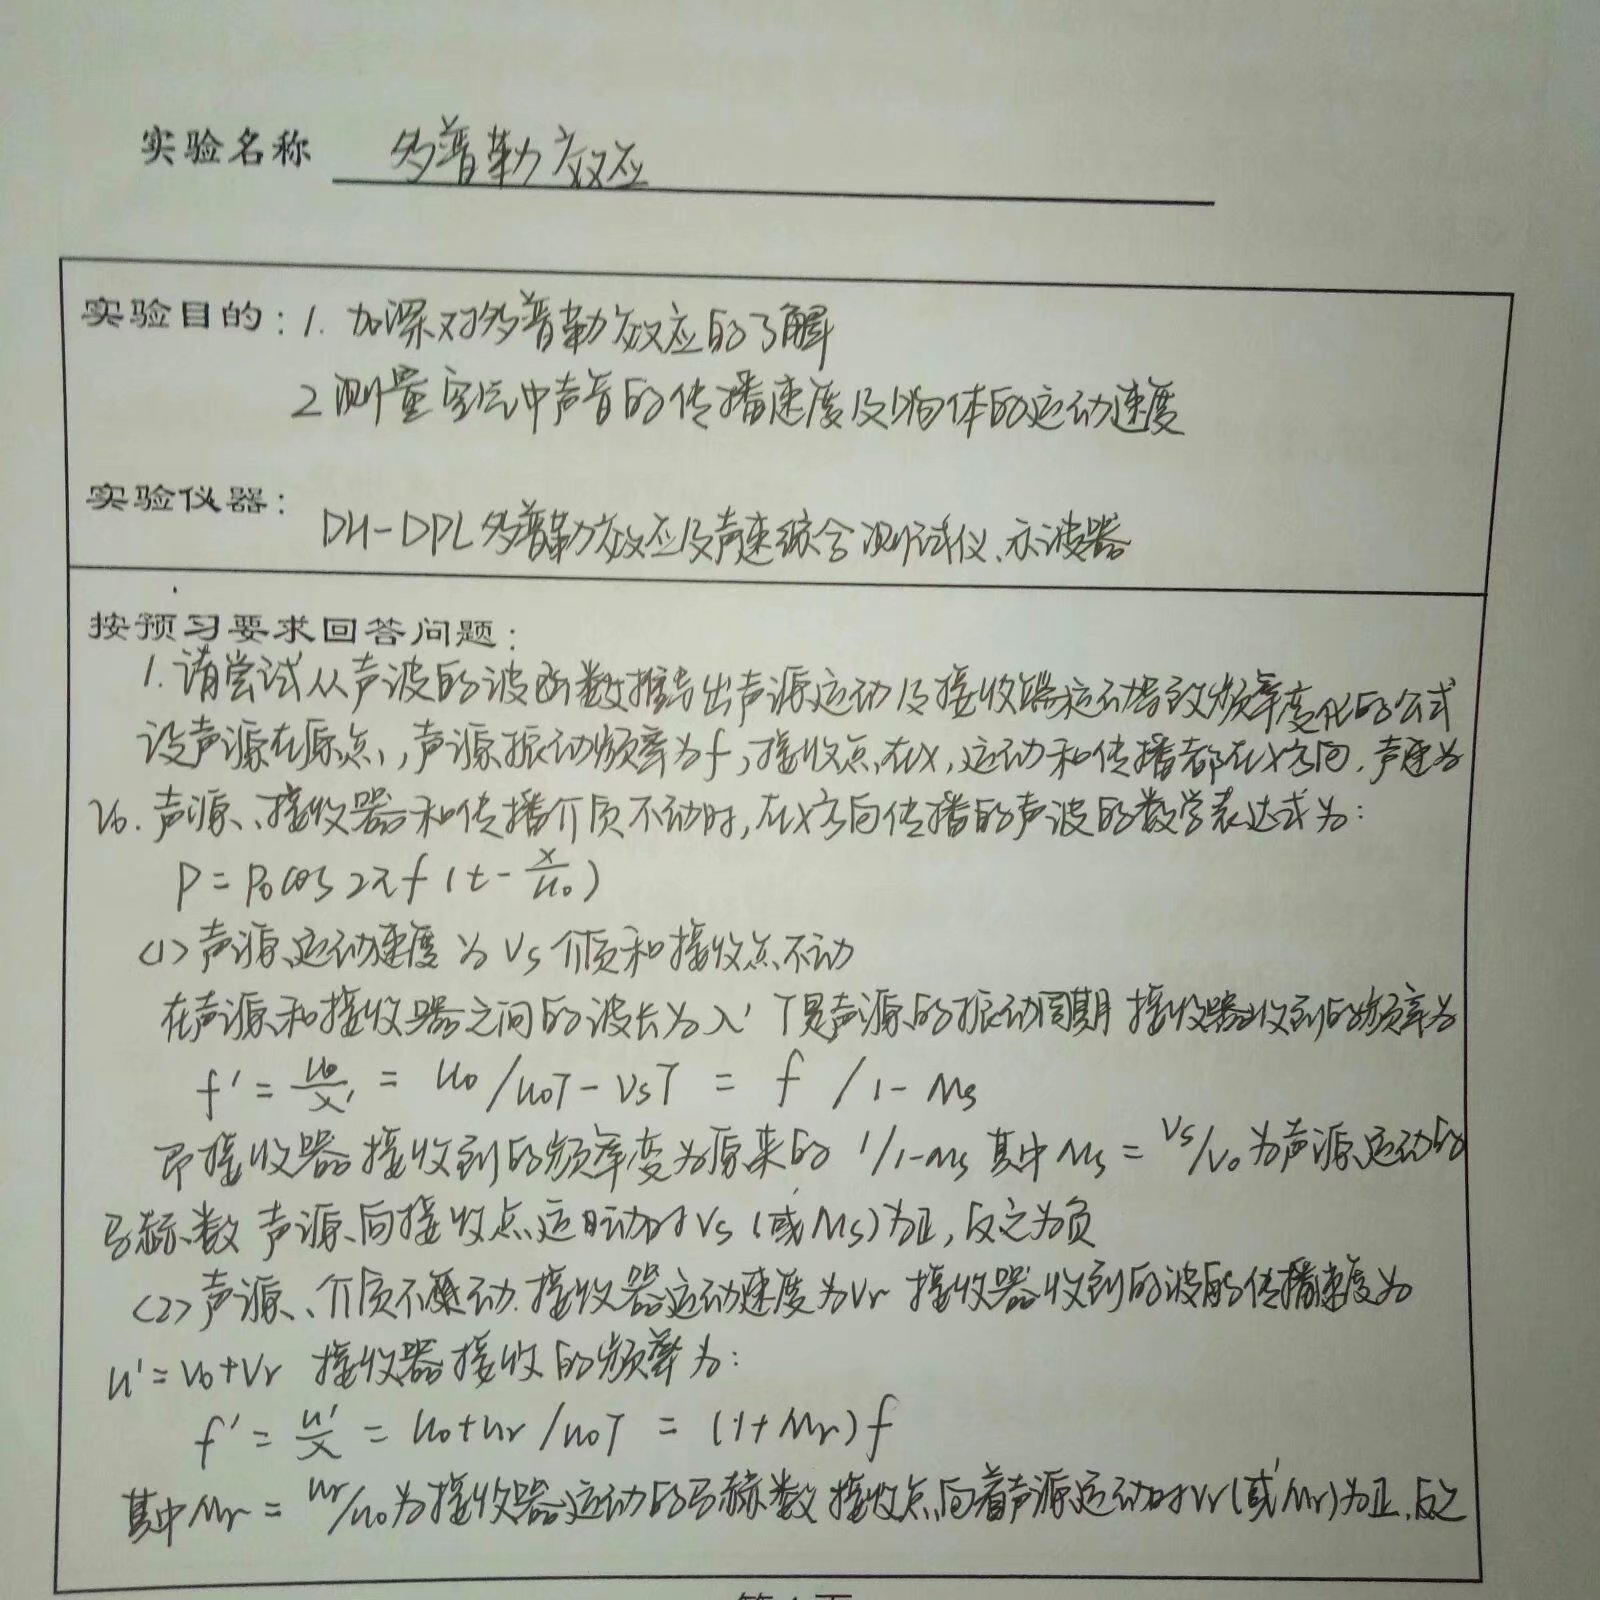 实验名称 多普勒效应
实验目的：1. 加深对多普勒效应的了解
2 测量空气中声音的传播速度及物体的运动速度
实验仪器：
DH-DPL多普勒效应及声速综合测试仪、示波器
按预习要求回答问题：
1. 请尝试从声波的波函数推导出声源运动及接收器运动导致频率变化的公式
设声源在原点，声源振动频率为f，接收点在x，运动和传播都在x方向. 声速为
V₀. 声源、接收器和传播介质不动时，在x方向传播的声波的数学表达式为：
P = P₀cos 2πf (t - x/u₀)
(1) 声源运动速度为Vs 介质和接收点不动
在声源和接收器之间的波长为λ' T是声源的振动周期 接收器收到的频率为
f' = u₀/λ' = u₀/u₀T - VsT = f /1 - Ms
即接收器接收到的频率变为原来的 1/1-Ms 其中Ms = Vs/V₀ 为声源运动的
马赫数 声源向接收点运动时Vs (或Ms)为正，反之为负
(2) 声源、介质不动. 接收器运动速度为Vr 接收器收到的波的传播速度为
u' = V₀+Vr 接收器接收的频率为：
f' = u'/λ = u₀+ur /u₀T = (1+Mr)f
其中Mr = ur/u₀ 为接收器运动的马赫数 接收点向着声源运动时Vr(或Mr)为正，反之